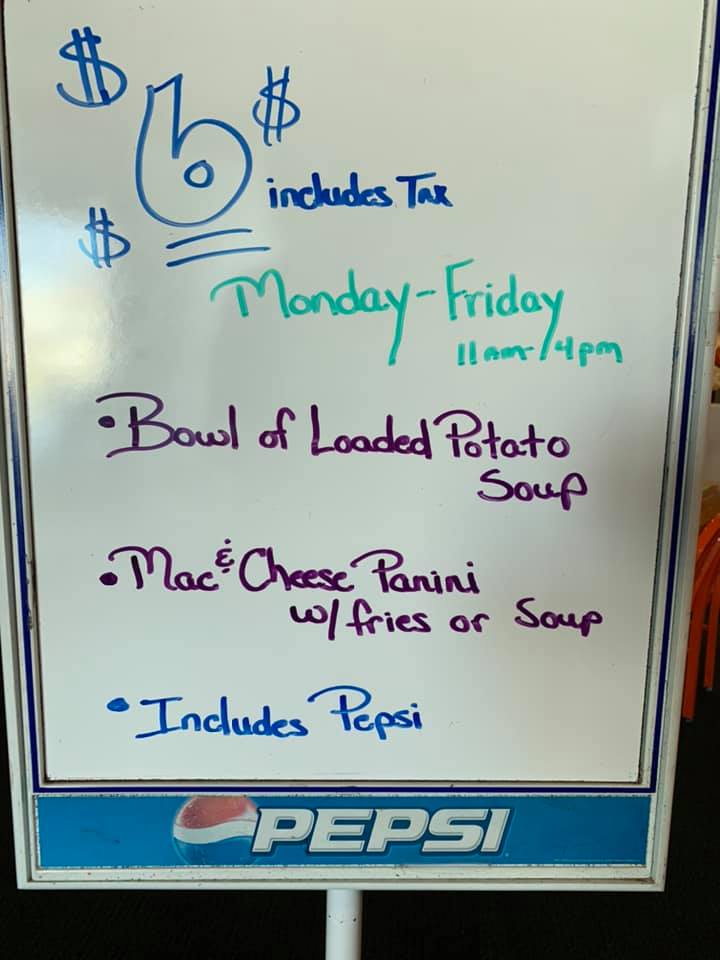 $ 6 $
includes Tax
$
Monday-Friday
11am-4pm
• Bowl of Loaded Potato
Soup
• Mac & Cheese Panini
w/ fries or Soup
• Includes Pepsi
PEPSI